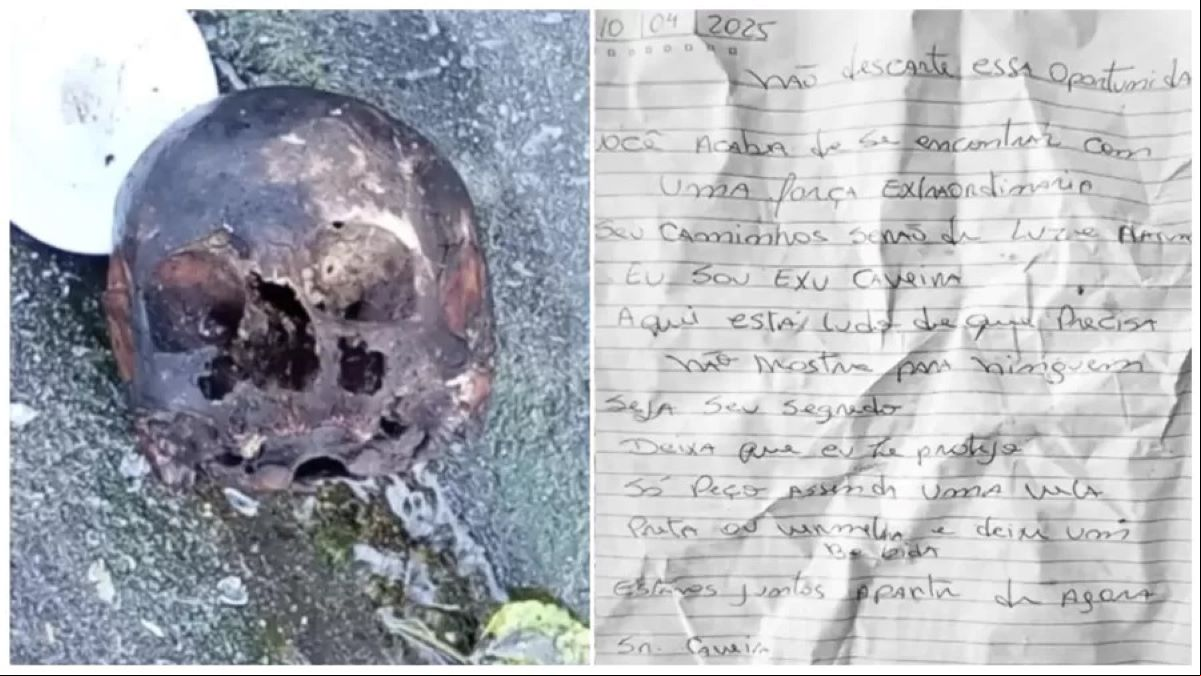 10 04 2025
NÃO descarte essa Oportunida
VOCÊ ACABA de Se encontrar com
UMA força EXTRAORDINARIA
Seu CAMINHOS SERÃO de Luz e
EU SOU EXU CAVEIRA
Aqui está tudo de que Precisa
NÃO MOSTRE PARA Ninguem
SEJA Seu Segredo
DEIXA que eu te proteja
SÓ Peço ASSENDA UMA VELA
Preta ou vermelha e deixe um
Bebida
juntos APARTI de AGORA
Sr. Caveira